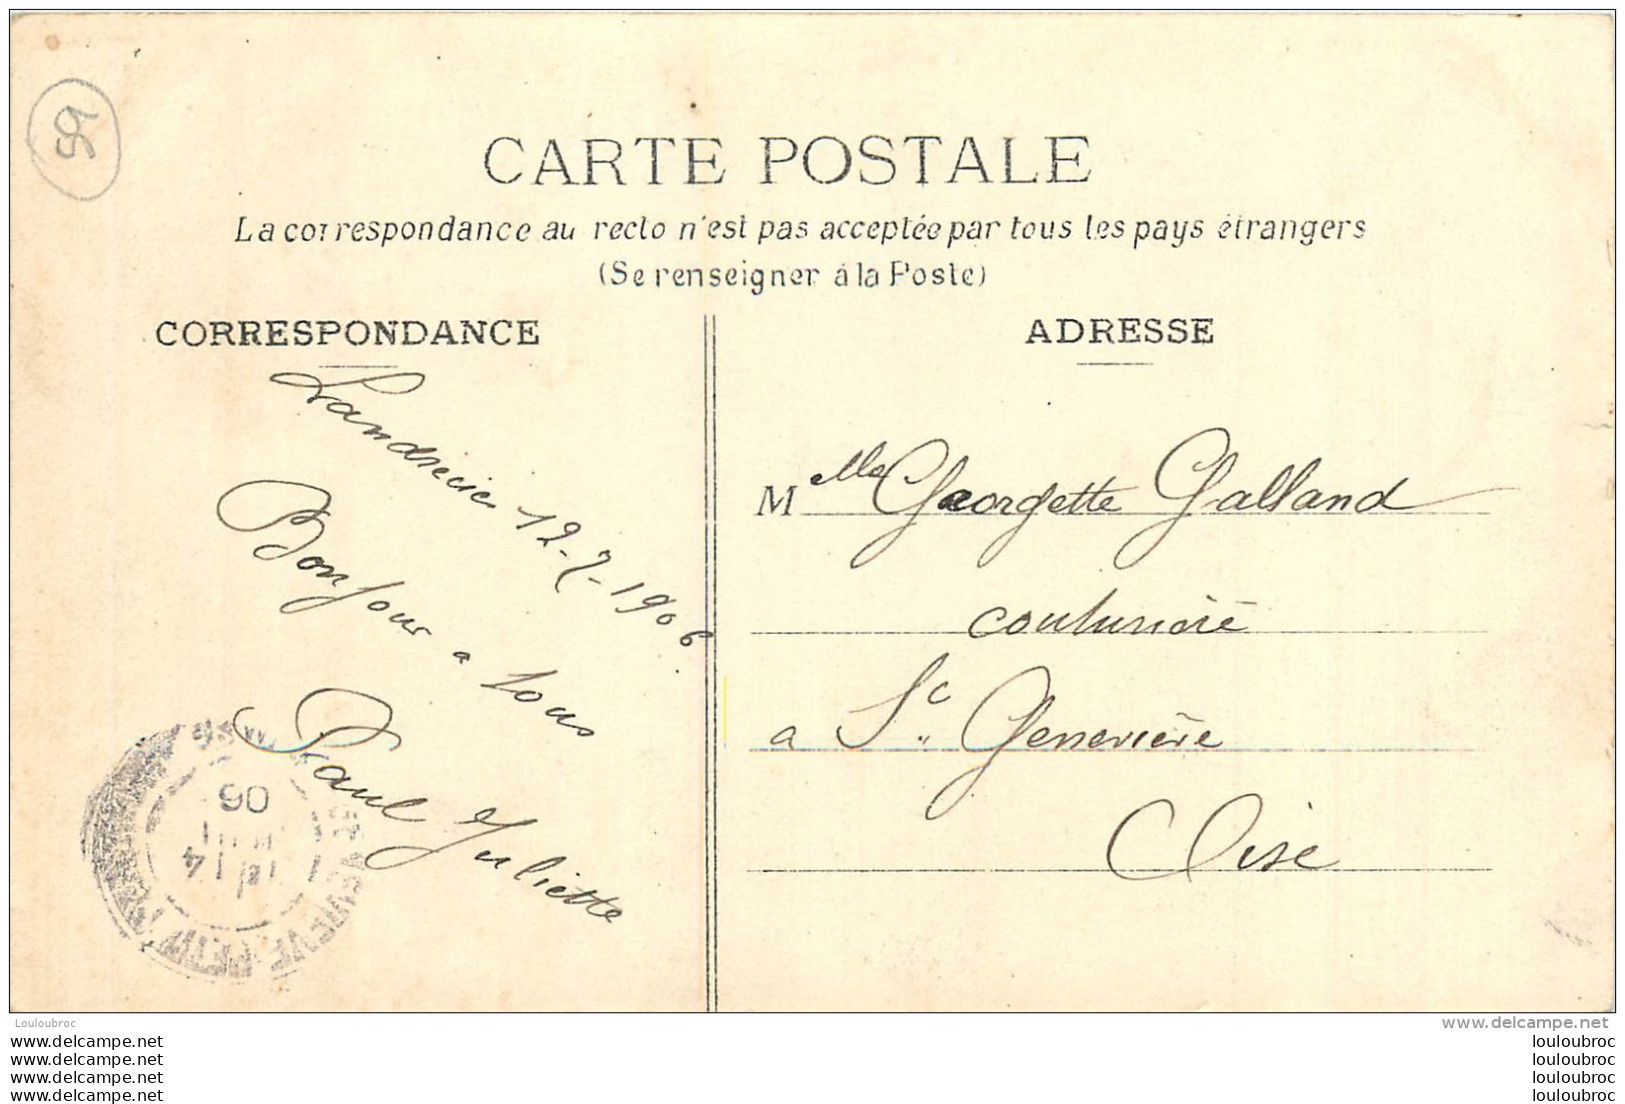 59
CARTE POSTALE
La correspondance au recto n'est pas acceptée par tous les pays étrangers
(Se renseigner à la Poste)
CORRESPONDANCE
Landrecies 12-7-1906
Bonjour a tous
Paul Juliette
06
14
ADRESSE
Melle Georgette Galland
couturière
a Ste Geneviève
Oise
Louloubroc
www.delcampe.net
www.delcampe.net
www.delcampe.net
www.delcampe.net
www.delcampe.net
louloubroc
louloubroc
louloubroc
louloubroc